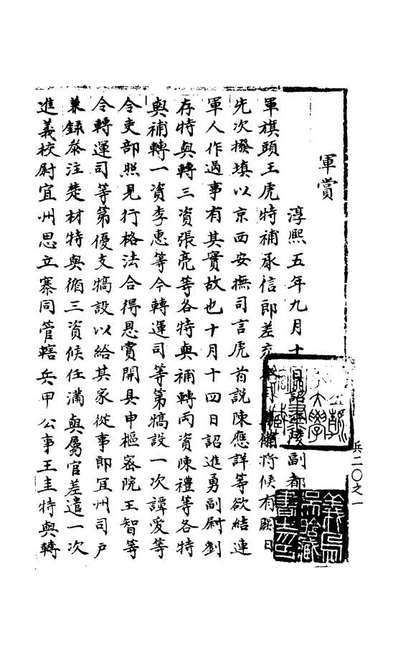 軍賞
淳熙五年九月十日詔副都
軍旗頭王虎特補承信郎差充將候有闕日
先次撥填以京西安撫司言虎首說陳應詳等欲結連
軍人作過事有其實故也十月十四日詔進勇副尉劉
存特與轉三資張亮等各特與補轉两資陳禮等各特
與補轉一資李惠等令轉運司等第犒設一次譚愛等
令吏部照見行格法合得恩賞開具申樞密院王智等
令轉運司等第優支犒設以給其家從事郎宜州司戶
兼錄參注楚材特與循三資候任滿與屬官差遣一次
進義校尉宜州思立寨同管轄兵甲公事王圭特與轉
兵二〇之一